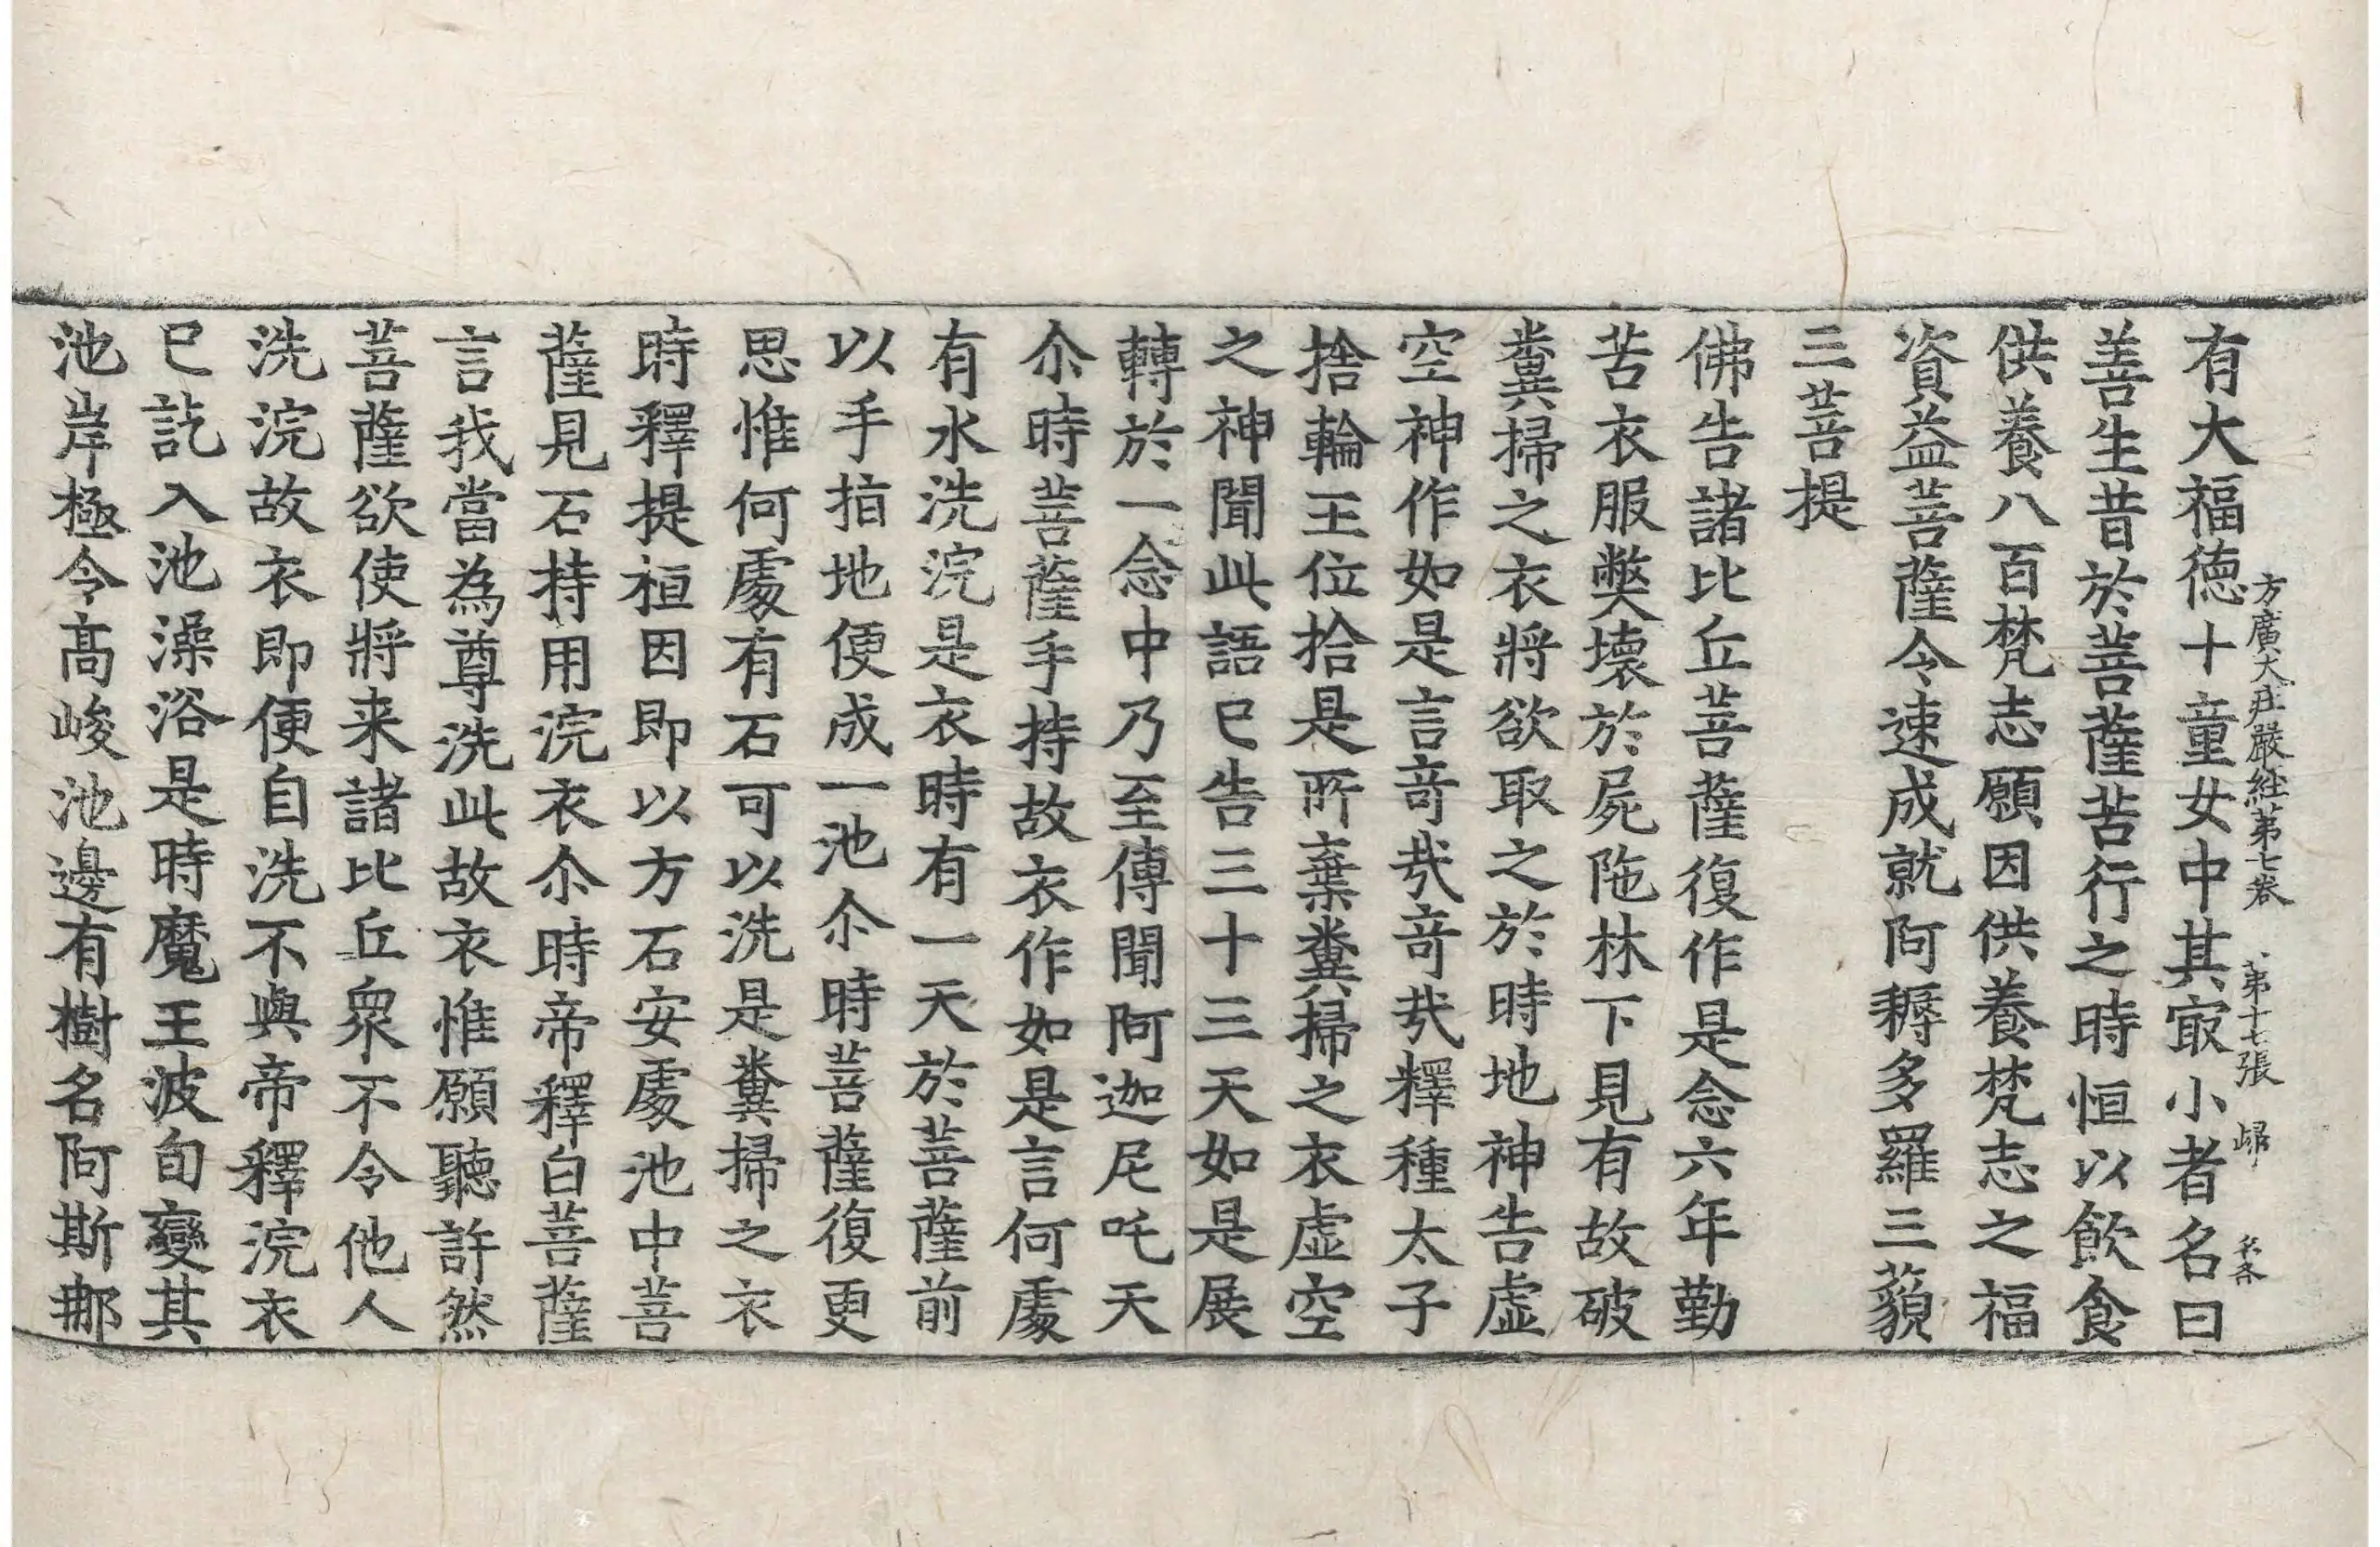 方廣大庄嚴経苐七卷 苐十七張 㱕
有大福德十童女中其㝡小者名曰
善生昔於菩薩苦行之時恒以飲食
供養八百梵志願因供養梵志之福
資益菩薩令速成就阿耨多羅三藐
三菩提
佛告諸比丘菩薩復作是念六年勤
苦衣服獘壞於屍陁林下見有故破
糞掃之衣將欲取之於時地神告虛
空神作如是言竒㢤竒㢤釋種太子
捨輪王位拾是所棄糞掃之衣虛空
之神聞此語已告三十三天如是展
轉於一念中乃至傳聞阿迦尼吒天
尒時菩薩手持故衣作如是言何處
有水洗浣是衣時有一天於菩薩前
以手指地便成一池尒時菩薩復更
思惟何處有石可以洗是糞掃之衣
時釋提桓因即以方石安處池中菩
薩見石持用浣衣尒時帝釋白菩薩
言我當為尊洗此故衣惟願聽許然
菩薩欲使將来諸比丘衆不令他人
洗浣故衣即便自洗不與帝釋浣衣
已訖入池澡浴是時魔王波旬變其
池岸極令高峻池邊有樹名阿斯那